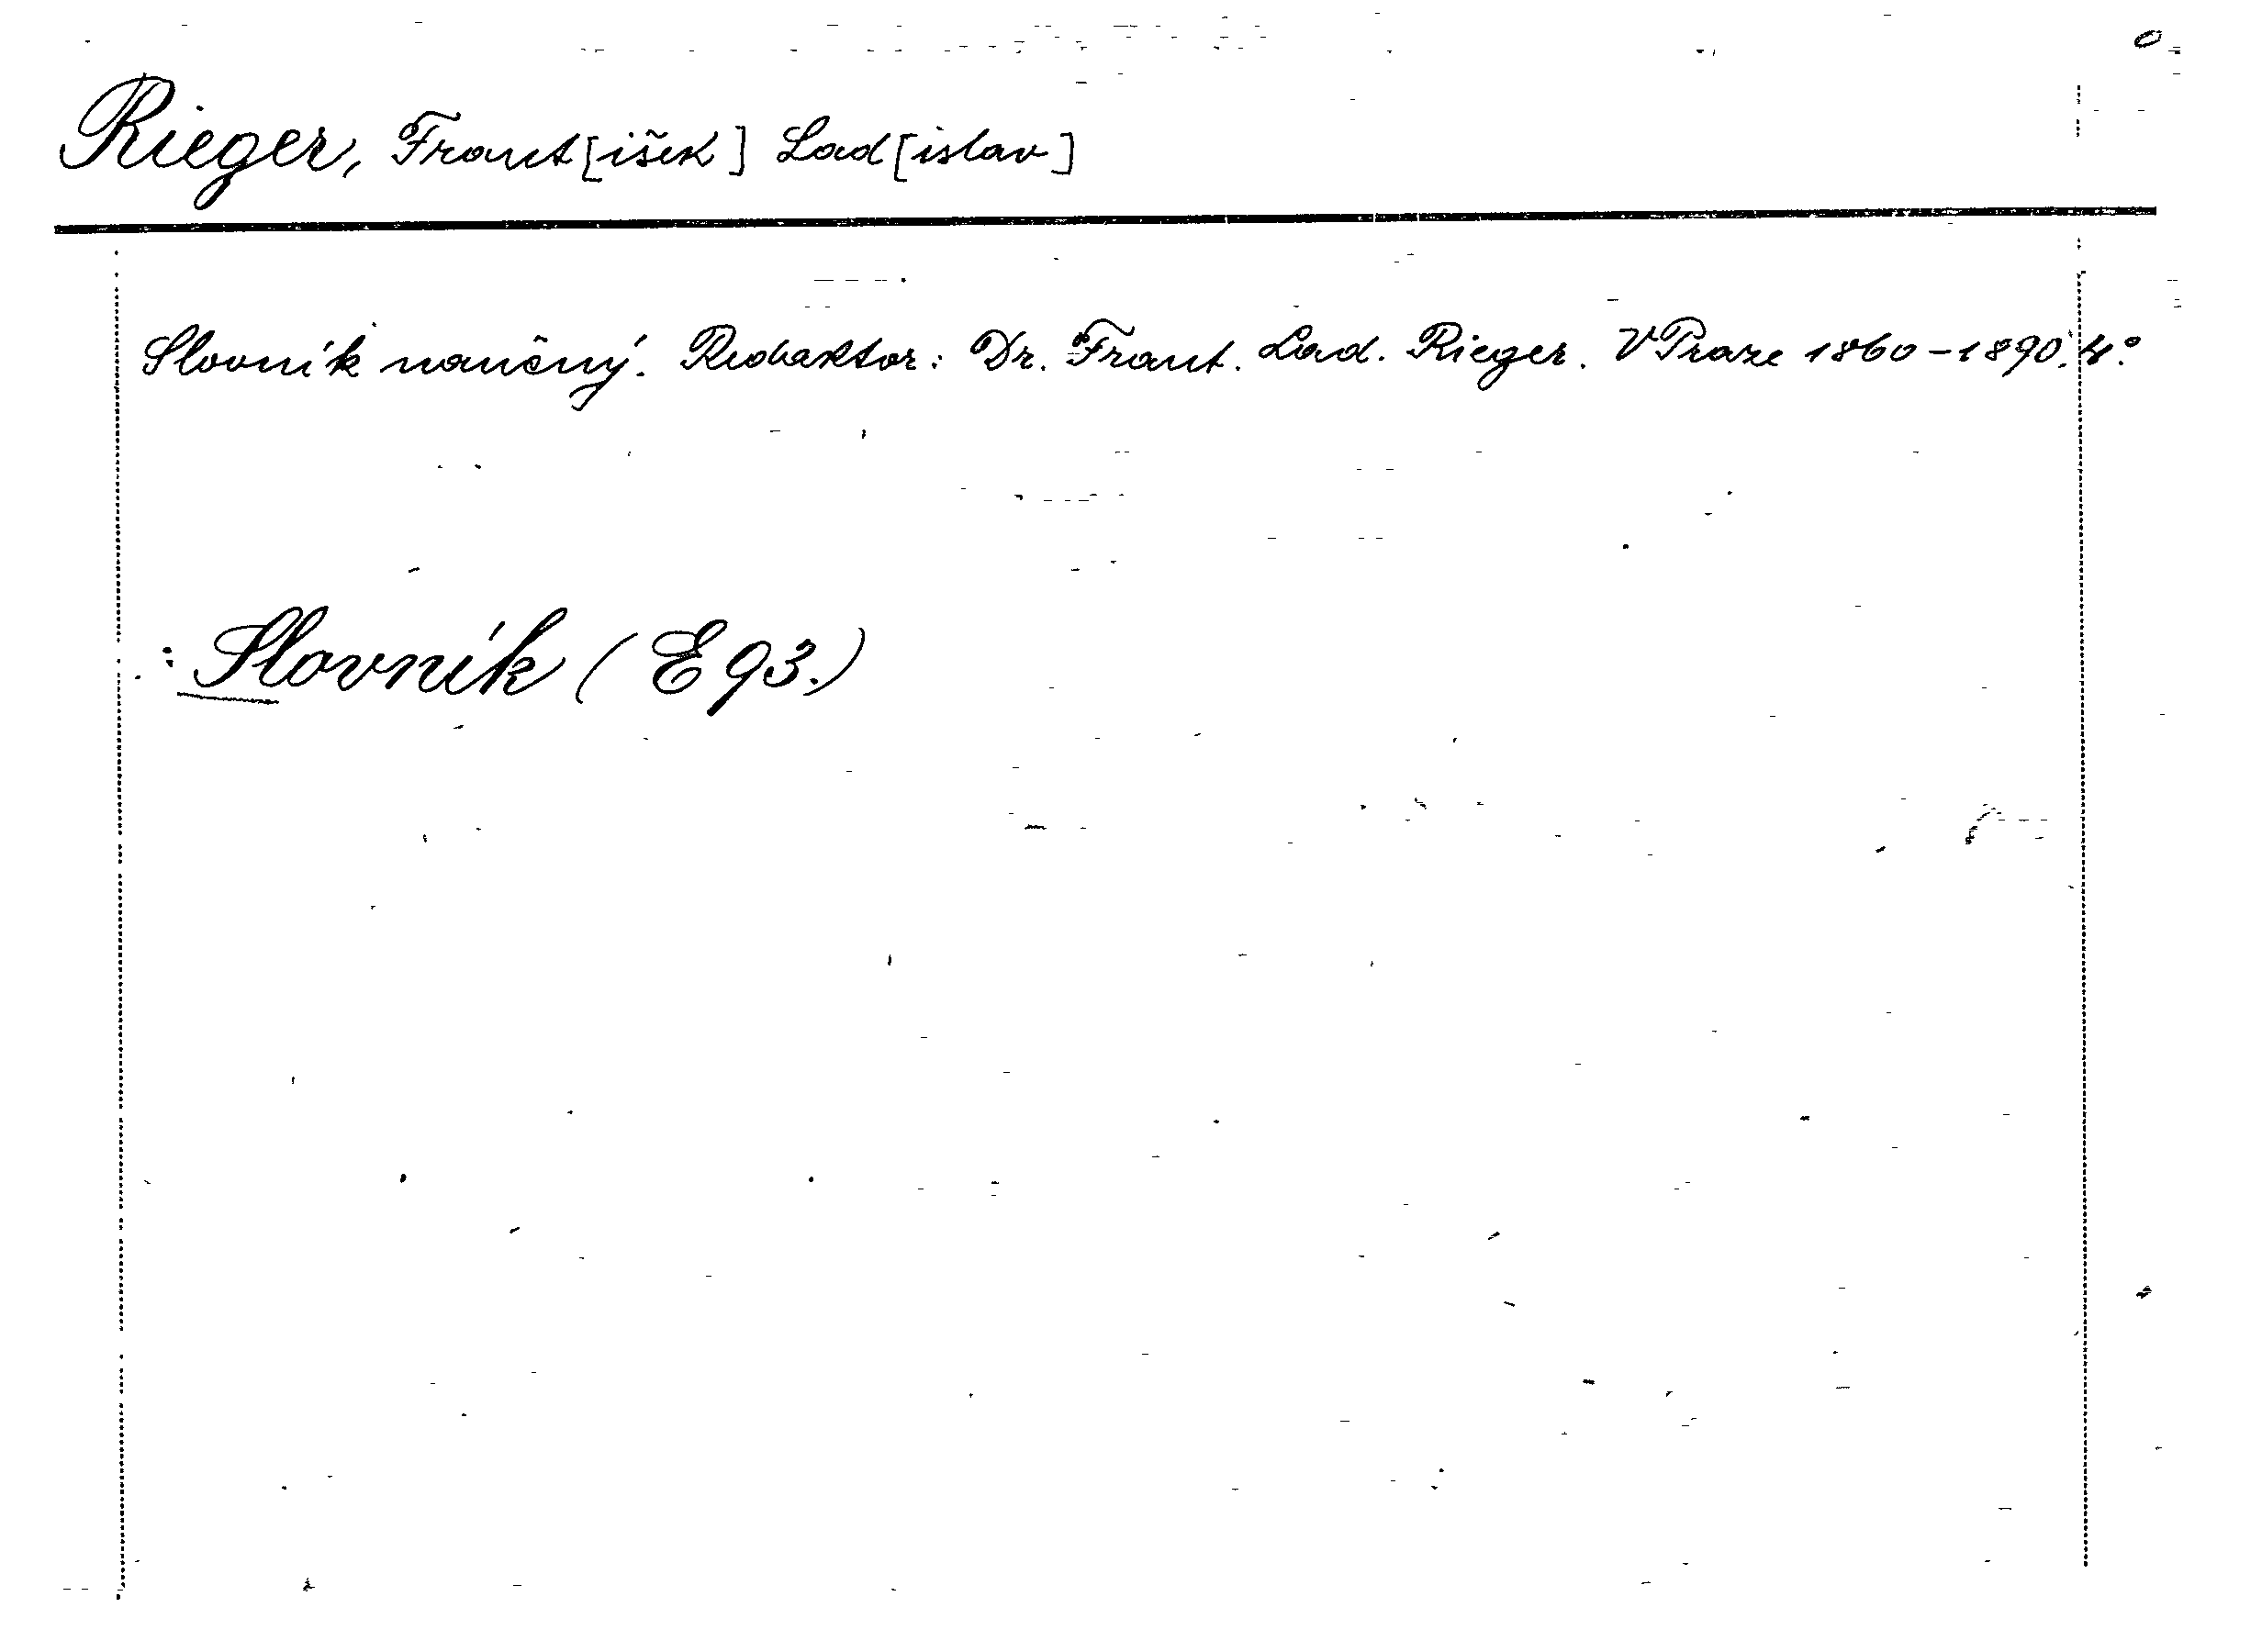 Rieger, Frant[išek] Lad[islav]
Slovník naučný. Redaktor: Dr. Frant. Lad. Rieger. V Praze 1860-1890. 4°.
: Slovník (E 93.)